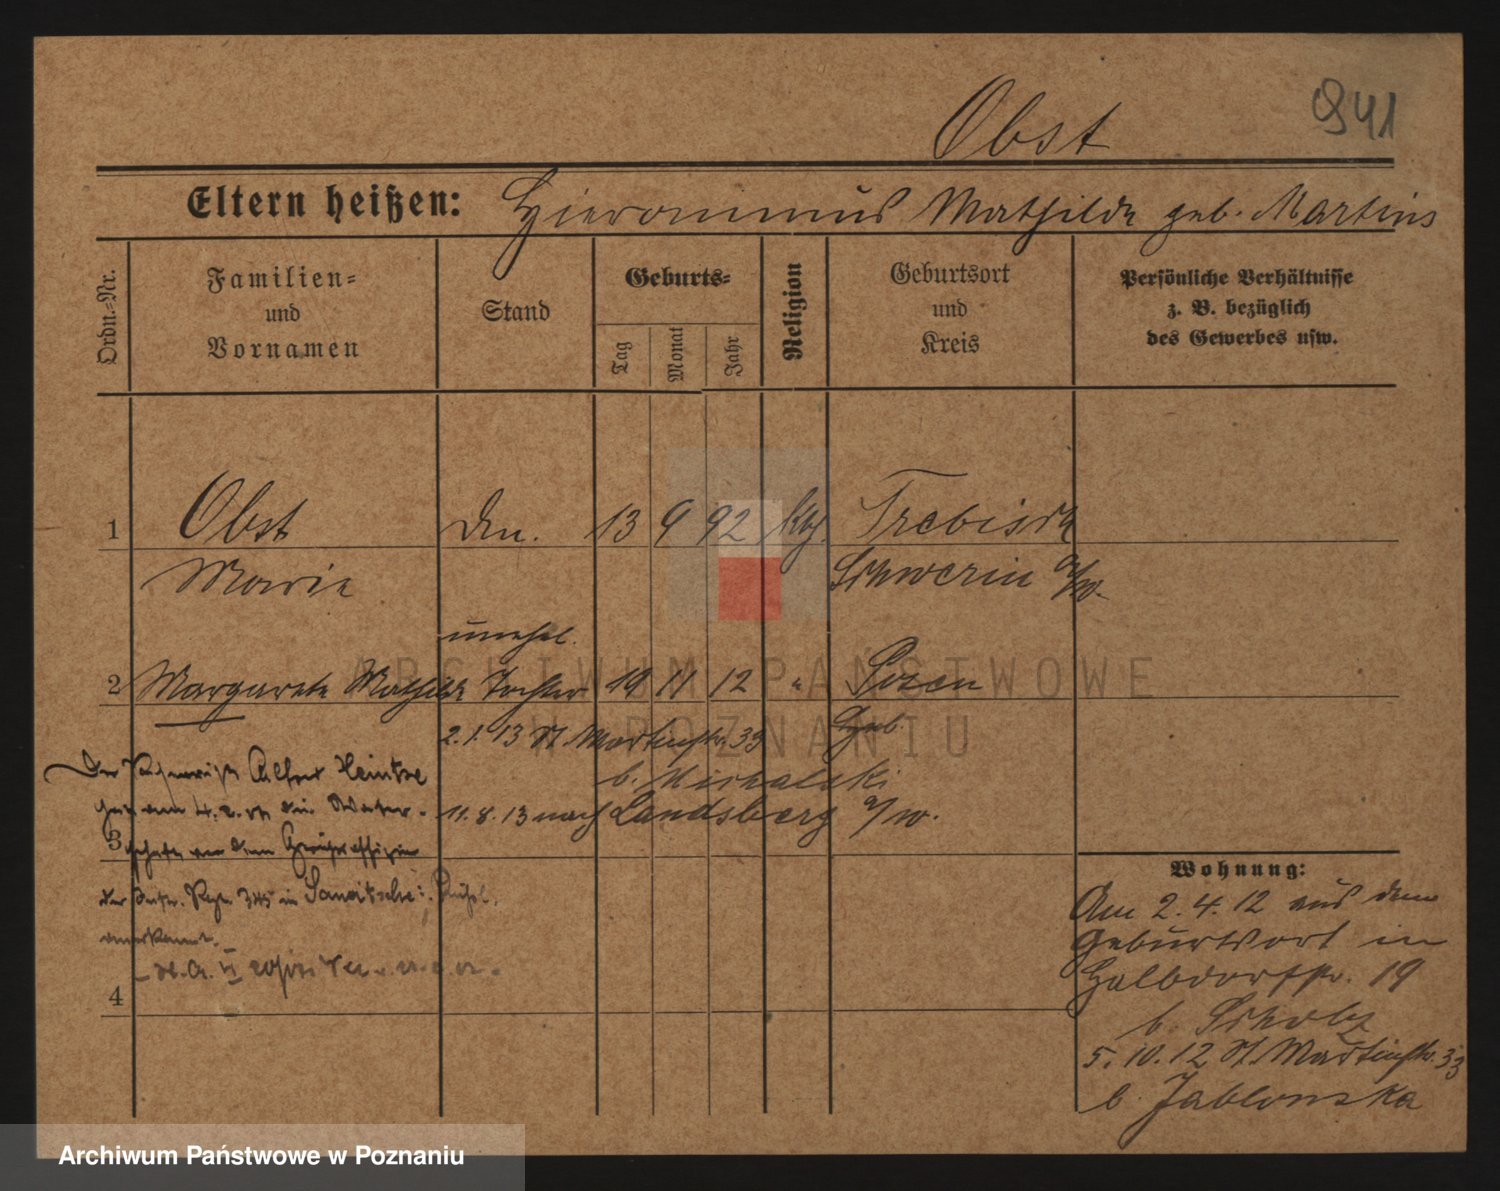 941
Obst
Eltern heißen: Hieronimus Mathilde geb. Martins
Ordn.-Nr.
Familien-
und
Vornamen
Stand
Geburts-
Tag
Monat
Jahr
Religion
Geburtsort
und
Kreis
Persönliche Verhältnisse
z. B. bezüglich
des Gewerbes usw.
1 Obst 13 9 92 Trebisch
Marie Schwerin a/W.
unehel.
2 Margarete Mathilde Tochter 19 11 12 " Posen
2.1.13 St Martinstr. 33 Geb.
b. Michalski
11.8.13 nach Landsberg a/W.
Der Alfred Heintze
hat am 4. 2. die Vater-
3 schaft vor dem
der Inftr. Regt. 345 in
anerkannt.
4
Wohnung:
Am 2.4.12 aus dem
Geburtsort in
Halbdorfstr. 19
b. Scholz
5.10.12 St. Martinstr. 33
b. Jablonska
ARCHIWUM PAŃSTWOWE
W POZNANIU
Archiwum Państwowe w Poznaniu